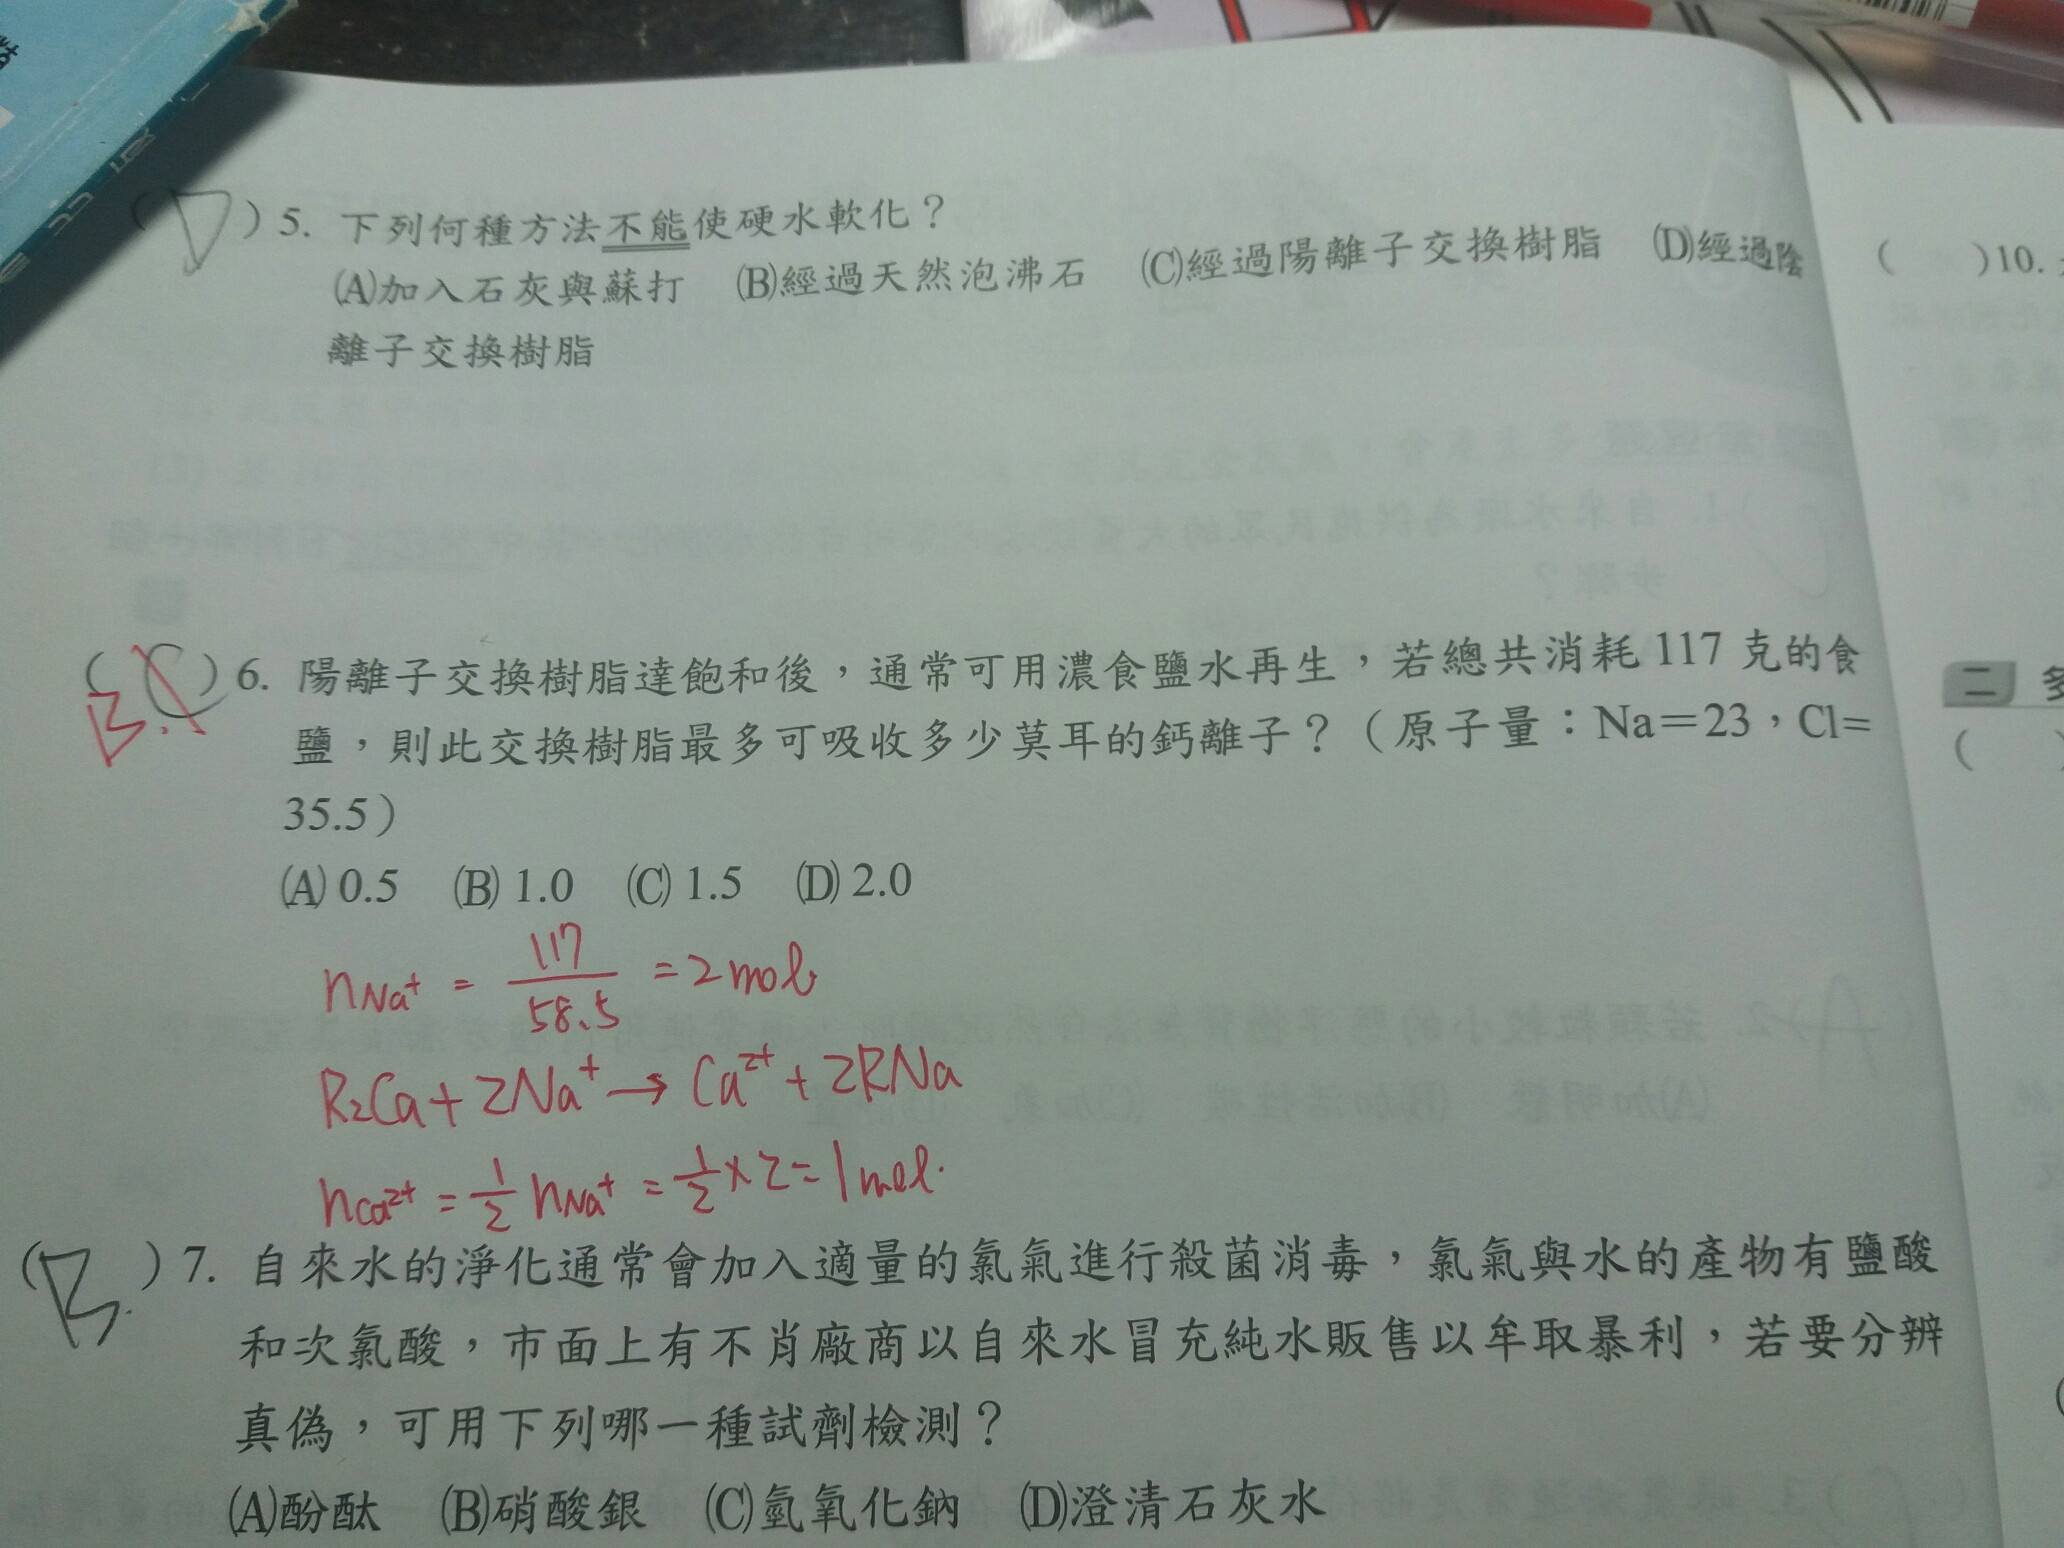 (D)5. 下列何種方法不能使硬水軟化？
(A)加入石灰與蘇打 (B)經過天然泡沸石 (C)經過陽離子交換樹脂 (D)經過陰
離子交換樹脂
(C)6. 陽離子交換樹脂達飽和後，通常可用濃食鹽水再生，若總共消耗 117 克的食
B.
鹽，則此交換樹脂最多可吸收多少莫耳的鈣離子？（原子量：Na＝23，Cl＝
35.5）
(A) 0.5 (B) 1.0 (C) 1.5 (D) 2.0
nNa⁺ = 117/58.5 = 2 mol
R₂Ca + 2Na⁺ → Ca²⁺ + 2RNa
nCa²⁺ = 1/2 nNa⁺ = 1/2 × 2 = 1 mol.
(B.)7. 自來水的淨化通常會加入適量的氯氣進行殺菌消毒，氯氣與水的產物有鹽酸
和次氯酸，市面上有不肖廠商以自來水冒充純水販售以牟取暴利，若要分辨
真偽，可用下列哪一種試劑檢測？
(A)酚酞 (B)硝酸銀 (C)氫氧化鈉 (D)澄清石灰水
( )10.
二 多
(